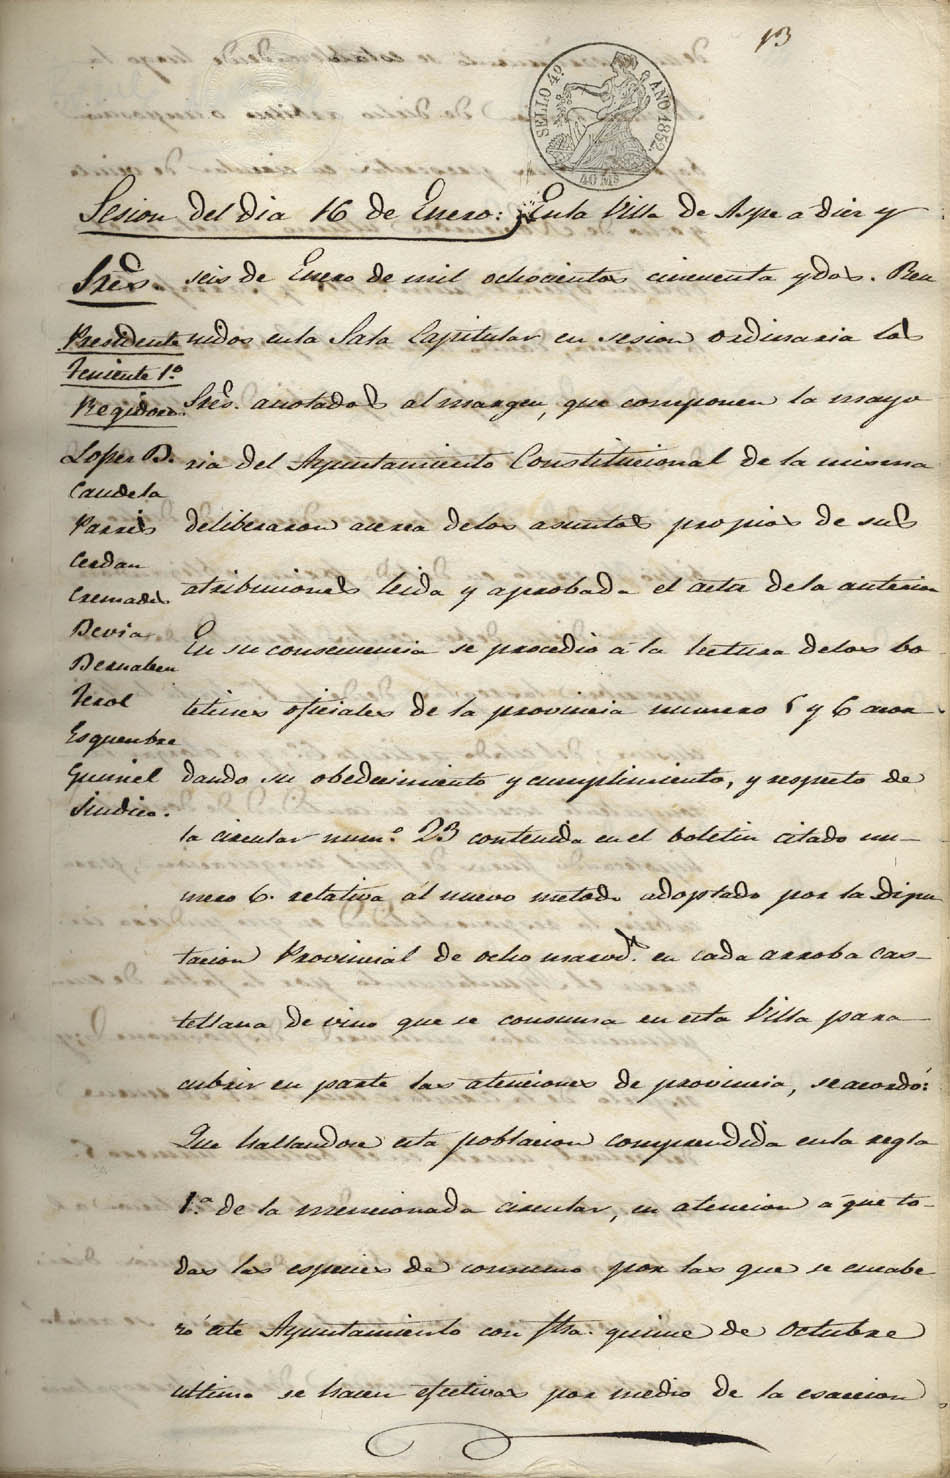 13
SELLO 4º AÑO 1852.
40 Ms
Sesion del dia 16 de Enero: En la Villa de Aspe á diez y
seis de Enero de mil ochocientos cincuenta y dos. Reu
nidos en la Sala Capitular en sesion ordinaria los
Sres. anotados al margen, que componen la mayo
ria del Ayuntamiento Constitucional de la misma
deliberaron acerca de los asuntos propios de sus
atribuciones leida y aprobada el acta de la anterior
En su consecuencia se procedio á la lectura de los bo
letines oficiales de la provincia numero 5 y 6 acor
dando su obedecimiento y cumplimiento, y respecto de
la circular num.º 23 contenida en el boletin citado nu-
mero 6. relativa al nuevo metodo adoptado por la Dipu
tacion Provincial de ocho marvds. en cada arroba cas-
tellana de vino que se consuma en esta Villa para
cubrir en parte las atenciones de provincia, se acordó:
Que hallandose esta poblacion comprendida en la regla
1.ª de la mencionada circular, en atencion á que to-
das las especies de consumo por las que se encabe
zó este Ayuntamiento con fha. quince de Octubre
ultimo se hacen efectivas por medio de la esaccion
Sres
Presidente
Teniente 1.º
Regidores.
Lopez B.
Candela
Parres
Cerdan
Cremades
Devia
Bernabeu
Terol
Esquembre
Guiniel
Sindico.